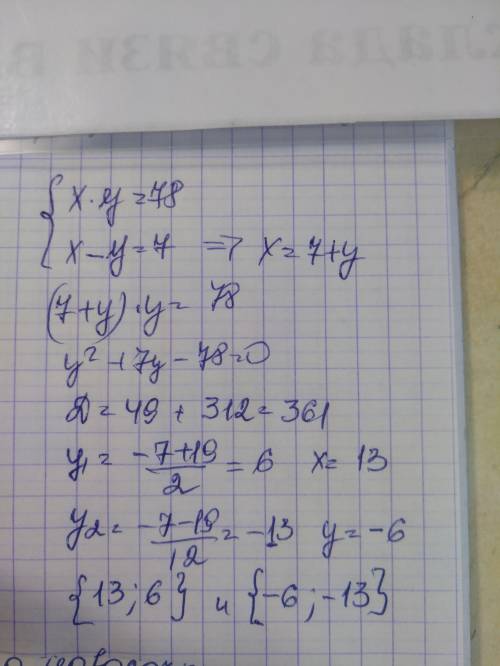 клада связи в
{ x·y=78
x-y=7 => x=7+y
(7+y)·y= 78
y²+7y-78=0
D=49+312=361
y₁= -7+19/2 = 6 x= 13
y₂= -7-19/12 = -13 y=-6
{13;6} и {-6;-13}